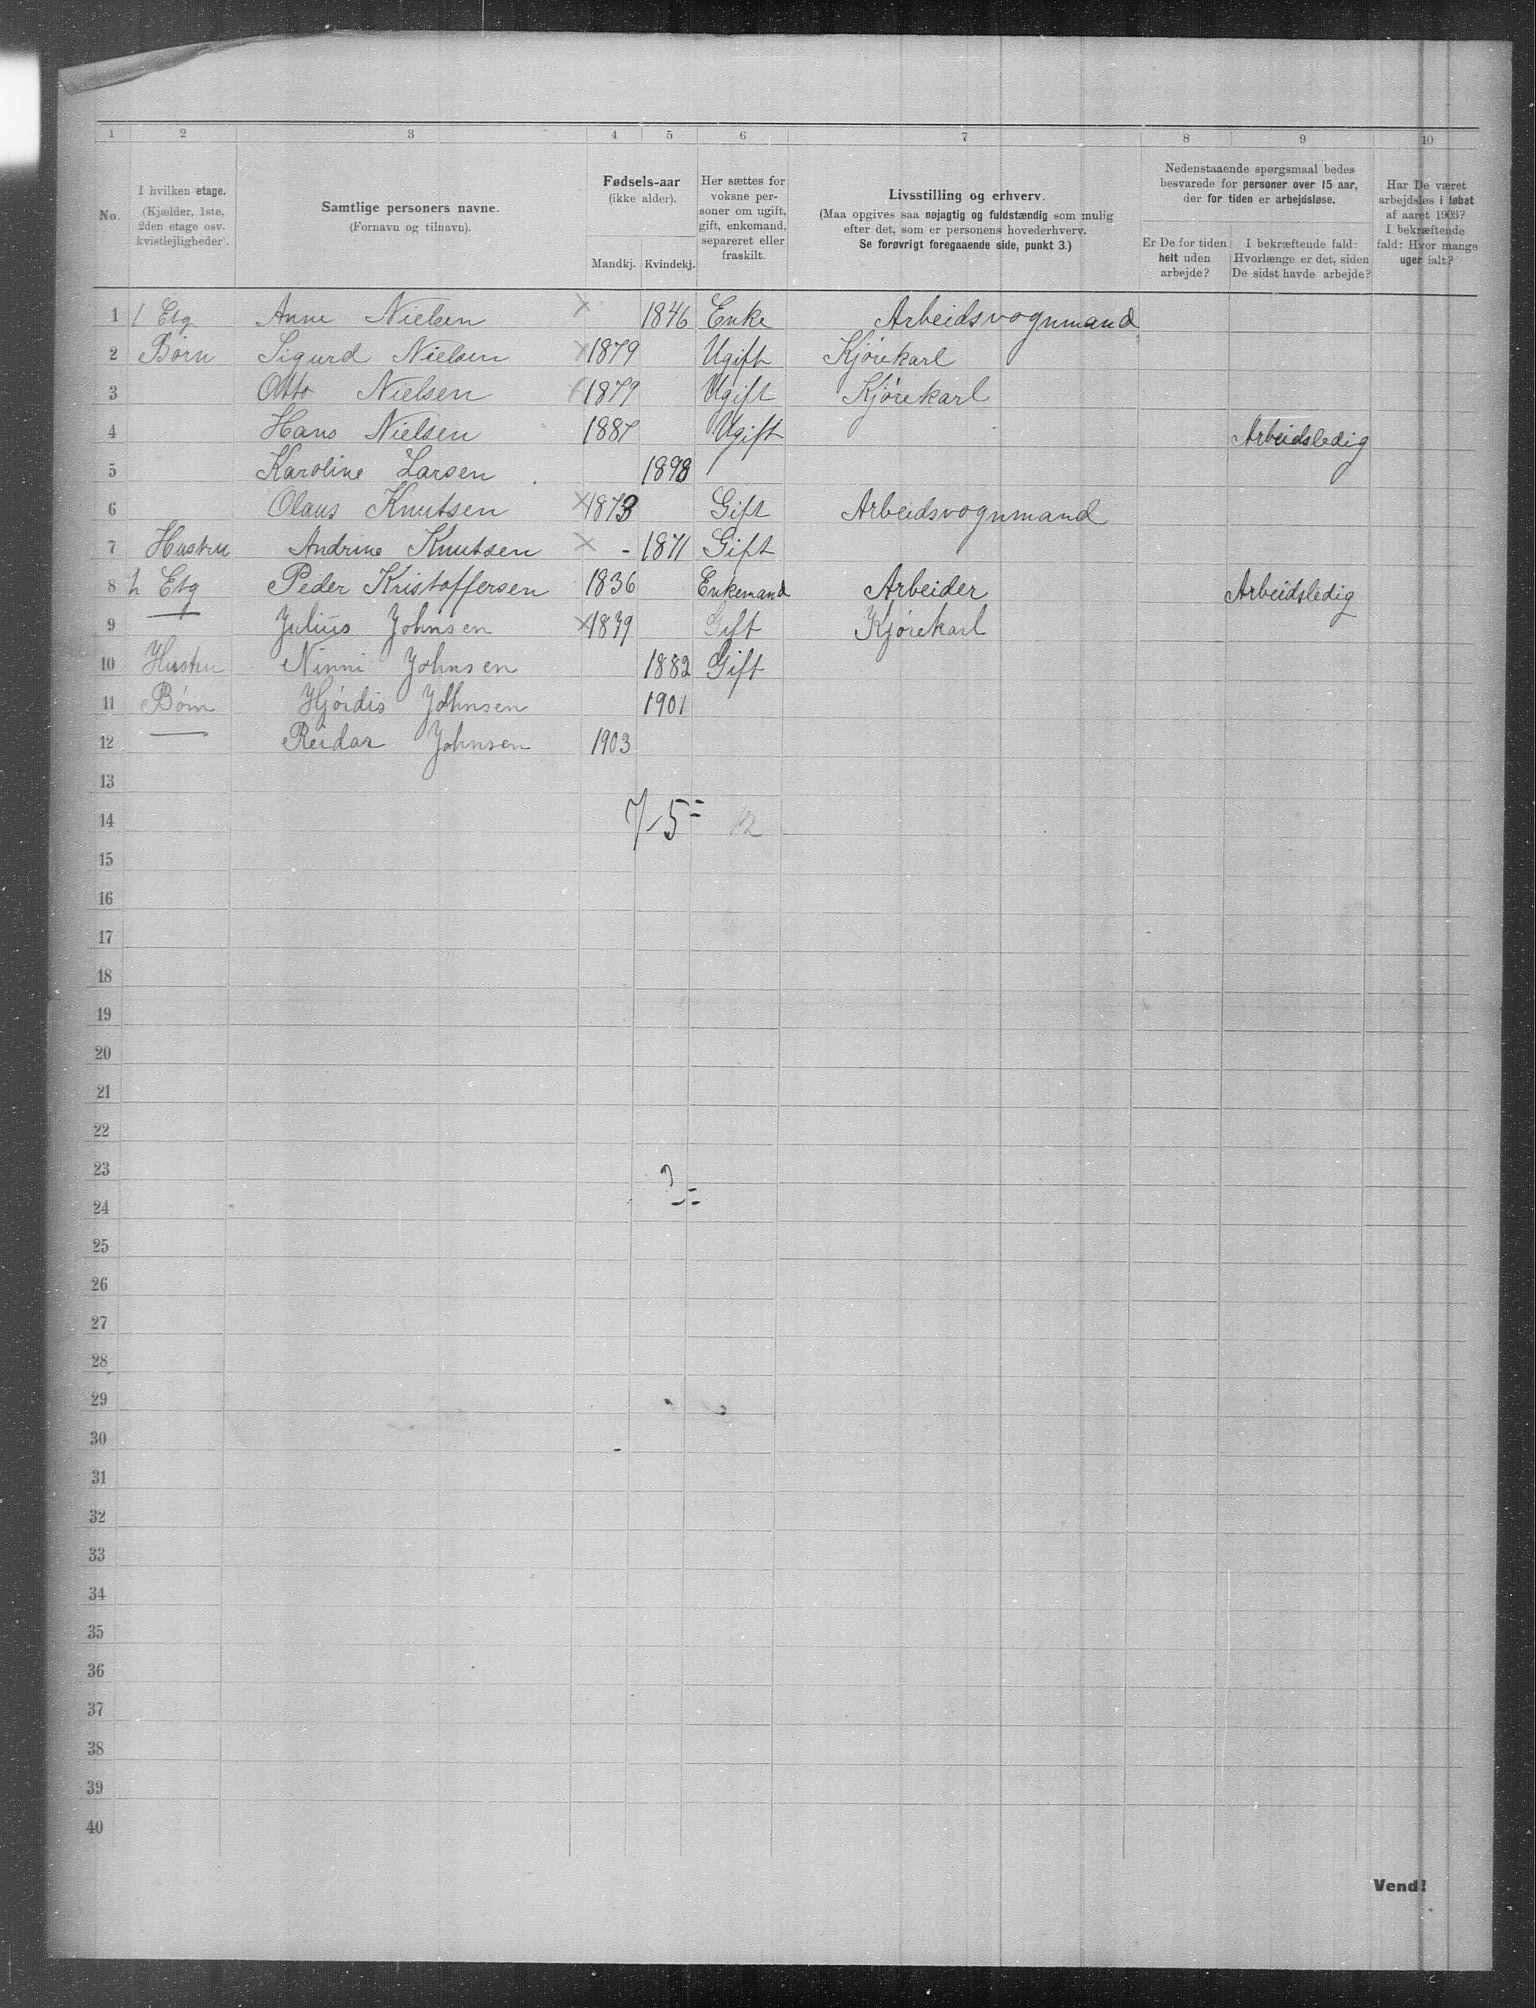 1 2 3 4 5 6 7 8 9 10
No.
I hvilken etage.
(Kjælder, 1ste,
2den etage osv.
kvistlejligheder).
Samtlige personers navne.
(Fornavn og tilnavn).
Fødsels-aar
(ikke alder).
Mandkj. Kvindekj.
Her sættes for
voksne per-
soner om ugift,
gift, enkemand,
separeret eller
fraskilt.
Livsstilling og erhverv.
(Maa opgives saa nøjagtig og fuldstændig som mulig
efter det, som er personens hovederhverv.
Se forøvrigt foregaaende side, punkt 3.)
Nedenstaaende spørgsmaal bedes
besvarede for personer over 15 aar,
der for tiden er arbejdsløse.
Er De for tiden
helt uden
arbejde?
I bekræftende fald:
Hvorlænge er det, siden
De sidst havde arbejde?
Har De været
arbejdsløs i løbet
af aaret 1903?
I bekræftende
fald: Hvor mange
uger ialt?
1 1 Etg Anne Nielsen × 1846 Enke Arbeidsvognmand
2 Børn Sigurd Nielsen × 1879 Ugift Kjørekarl
3 Otto Nielsen × 1879 Ugift Kjørekarl
4 Hans Nielsen 1887 Ugift Arbeidsledig
5 Karoline Larsen 1898
6 Olaus Knutsen × 1873 Gift Arbeidsvognmand
7 Hustru Andrine Knutsen × - 1871 Gift
8 Etg Peder Kristoffersen 1836 Enkemand Arbeider Arbeidsledig
9 Julius Johnsen × 1879 Gift Kjørekarl
10 Hustru Ninni Johnsen 1882 Gift
11 Børn Hjórdis Johnsen 1901
12 Reidar Johnsen 1903
13
14 7-5= 12
15
16
17
18
19
20
21
22
23
24
25
26
27
28
29
30
31
32
33
34
35
36
37
38
39
40
Vend!